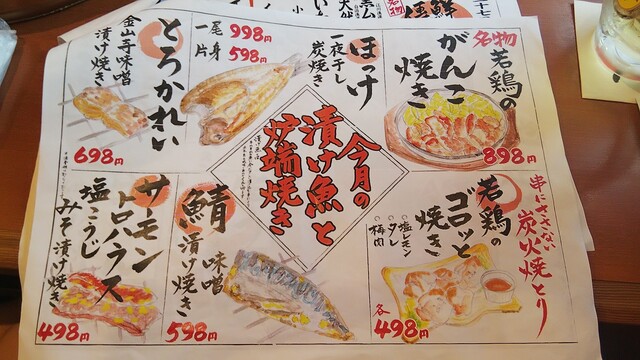 名物
若鶏の
がんこ
焼き
898円
ほっけ
一夜干し
炭焼き
一尾 998円
片身 598円
とろかれい
金山寺味噌
漬け焼き
698円
今月の
漬け魚と
炉端焼き
串にささない
炭火焼とり
若鶏の
ゴロッと
焼き
塩レモン
タレ
梅肉
各498円
鯖
味噌
漬け焼き
598円
サーモン
トロハラス
塩こうじ
みそ漬け焼き
498円